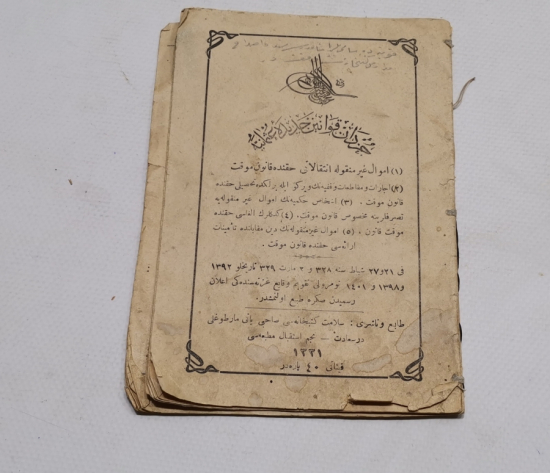 جزدان قوانین جدیدهٔ عثمانیه
(١) اموال غیر منقوله انتقالاتی حقنده قانون موقت
(٢) اجارات و مقاطعات وقفیه‌نك ویركو ایله برلكده تحصیلی حقنده
قانون موقت . (٣) اشخاص حكمیه‌نك اموال غیر منقوله‌یه
تصرفلرینه مخصوص قانون موقت . (٤) كدكلرك الغاسی حقنده
موقت قانون ، (٥) اموال غیر منقوله‌نك دین مقابلنده تأمینات
ارائه‌سی حقنده قانون موقت .
فی ٢١ و ٢٧ شباط سنه ٣٢٨ و ٢ مارت ٣٢٩ تاریخلو ١٣٩٢
و ١٣٩٨ و ١٤٠١ نومرولی تقویم وقایع غزته‌سنده‌كی اعلان
رسمیدن صكره طبع اولنمشدر .
طابع و ناشری : سلامت كتبخانه‌سی صاحبی یانی مارطوغلی
درسعادت نجم استقبال مطبعه‌سی
١٣٣١
فیئاتی ٤٠ پاره‌در